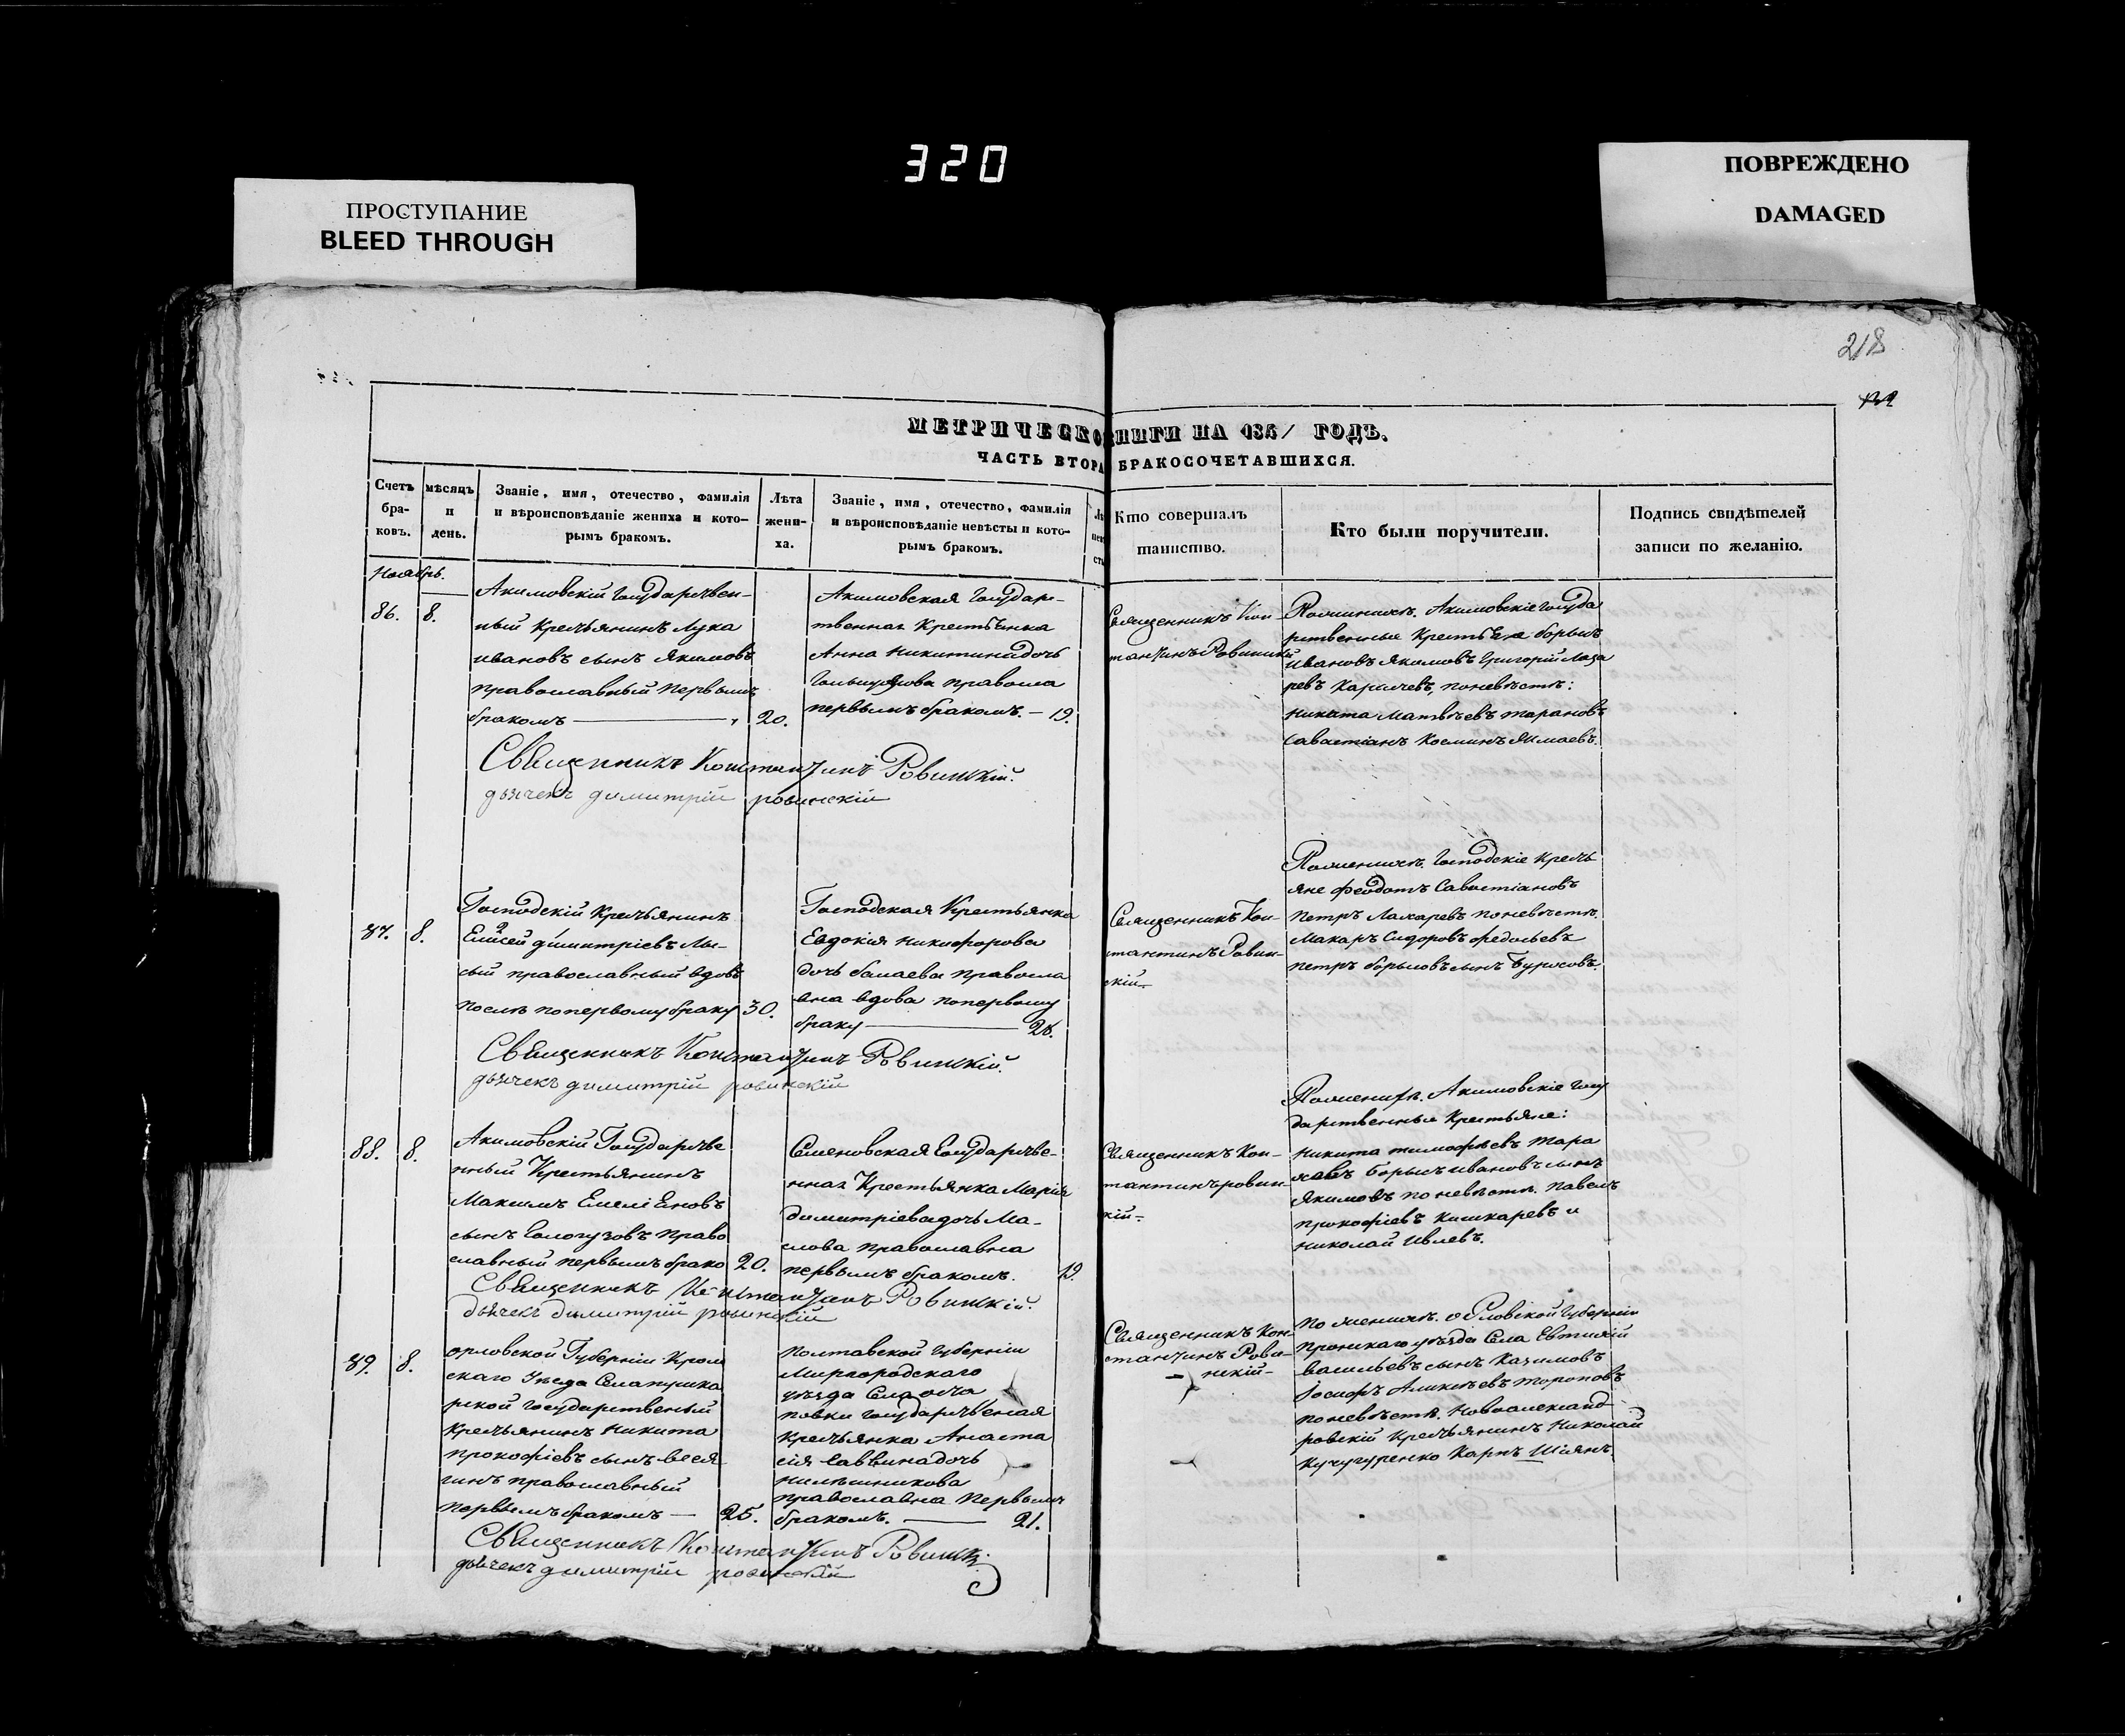 320
ПРОСТУПАНИЕ
BLEED THROUGH
ПОВРЕЖДЕНО
DAMAGED
218
МЕТРИЧЕСКО
НИГИ НА 1851 ГОДЪ.
ЧАСТЬ ВТОРА
БРАКОСОЧЕТАВШИХСЯ.
Счетъ бра-ковъ.
мѣсяцъ и день.
Званіе, имя, отечество, фамилія
и вѣроисповѣданіе жениха и кото-
рымъ бракомъ.
Лѣта жени-ха.
Званіе, имя, отечество, фамилія
и вѣроисповѣданіе невѣсты и кото-
рымъ бракомъ.
Кто совершалъ
таинство.
Кто были поручители.
Подпись свидѣтелей
записи по желанію.
Ноябрь.
86. 8.
Акимовскій Государствен-
ный Крестьянинъ Лука
ивановъ сынъ Якимовъ
православный первымъ
бракомъ 20.
Акимовская Государ-
твенная Крестьянка
Анна Никитина дочь
правосла
первымъ бракомъ. — 19.
Священникъ Кон-
тантинъ Ровинскій
По женихѣ. Акимовскіе Госуда
рственные Крестьяне борысъ
ивановъ Якимовъ Григорій Лаза
ревъ поневѣстѣ:
Никита Матвѣевъ тарановъ
Савастіанъ Косминъ
Священникъ Константинъ Ровинскій.
дьячекъ димитрій ровинскій
87. 8.
Господскій Крестьянинъ
Елисей димитріевъ Лы-
сый православный вдовъ
послѣ поперваго браку 30.
Господская Крестьянка
Евдокия Никифорова
дочь правосла
вна вдова поперваму
браку 28.
Священникъ Кон-
тантинъ Ровин-
скій
По женихѣ. Господскіе Кресть
яне Феодотъ Савастіановъ
петръ Лазаревъ поневѣстѣ.
Макаръ Сидоровъ
петръ борысовъ сынъ
Священникъ Константинъ Ровинскій.
дьячекъ димитрій ровинскій
88. 8.
Акимовскій Государстве
нный Крестьянинъ
Максимъ Емеліяновъ
сынъ Гологузовъ Право
славный первымъ брако 20.
Семеновская Государстве-
нная Крестьянка Марія
димитріева дочь Ма-
слова православна
первымъ бракомъ. 19.
Священникъ Кон-
тантинъ ровин-
кій
По женихѣ. Акимовскіе Госу
дарственные Крестьяне:
Никита тимофѣевъ тара
новъ борысъ ивановъ сынъ
Якимовъ по невѣстѣ. Павелъ
прокофіевъ Кишкаревъ и
Николай Ивлевъ.
Священникъ Константинъ Ровинскій.
дьячекъ димитрій ровинскій
89. 8.
орловской Губерніи Кром
скаго уѣзда Села
Государственый
Крестьянинъ Никита
прокофіевъ сынъ
православный
первымъ бракомъ — 25.
Полтавской Губерніи
Миргородскаго
уѣзда Села
Государственая
Крестьянка Анаста
сія Саввина дочь
православна первымъ
бракомъ. 21.
Священникъ Кон
стантинъ Рови-
нскій
По женихѣ. орловской Губерніи
уѣзда Села Евтихій
васильевъ сынъ
Іосифъ Аликсѣевъ тороповъ
по невѣстѣ. Новоалександ
ровскій Крестьянинъ Николай
Кучугуренко Карпъ Шіянъ.
Священникъ Константинъ Ровинскій
дьячекъ димитрій ровинскій